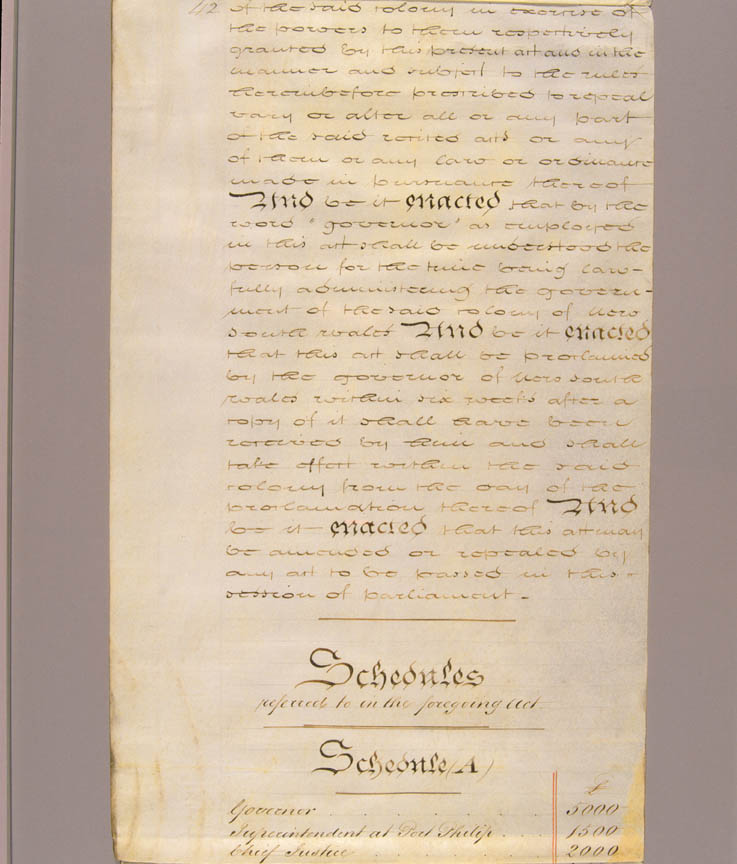 42 of the said colony in exercise of
the powers to them respectively
granted by this present act and in the
manner and subject to the rules
hereinbefore prescribed to repeal
vary or alter all or any part
of the said recited acts or any
of them or any law or ordinance
made in pursuance thereof
And be it enacted that by the
word "governor" as employed
in this act shall be understood the
person for the time being law-
fully administering the govern-
ment of the said colony of New
South Wales And be it enacted
that this act shall be proclaimed
by the governor of New South
Wales within six weeks after a
copy of it shall have been
received by him and shall
take effect within the said
colony from the day of the
proclamation thereof And
be it enacted that this act may
be amended or repealed by
any act to be passed in this
session of parliament.
Schedules
referred to in the foregoing Act
Schedule (A)
£
Governor . . . . . 5000
Superintendent at Port Philip . . . 1500
Chief Justice . . . . 2000